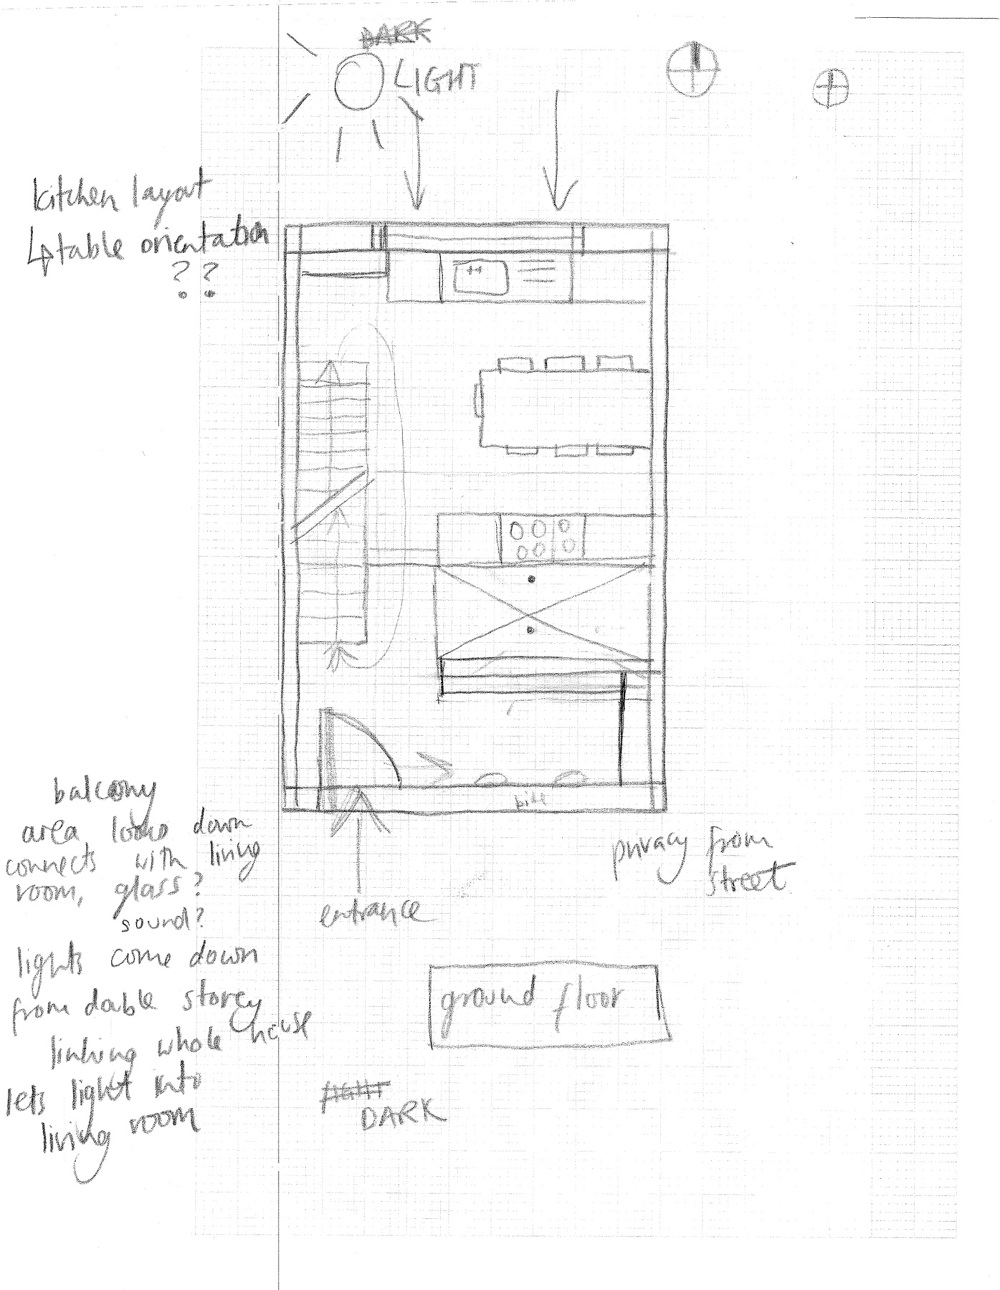 DARK
LIGHT
kitchen layout
↳ table orientation
??
bike
balcony
area looks down
connects with living
room, glass?
sound?
lights come down
from double storey
linking whole house
lets light into
living room
privacy from
street
entrance
ground floor
LIGHT
DARK